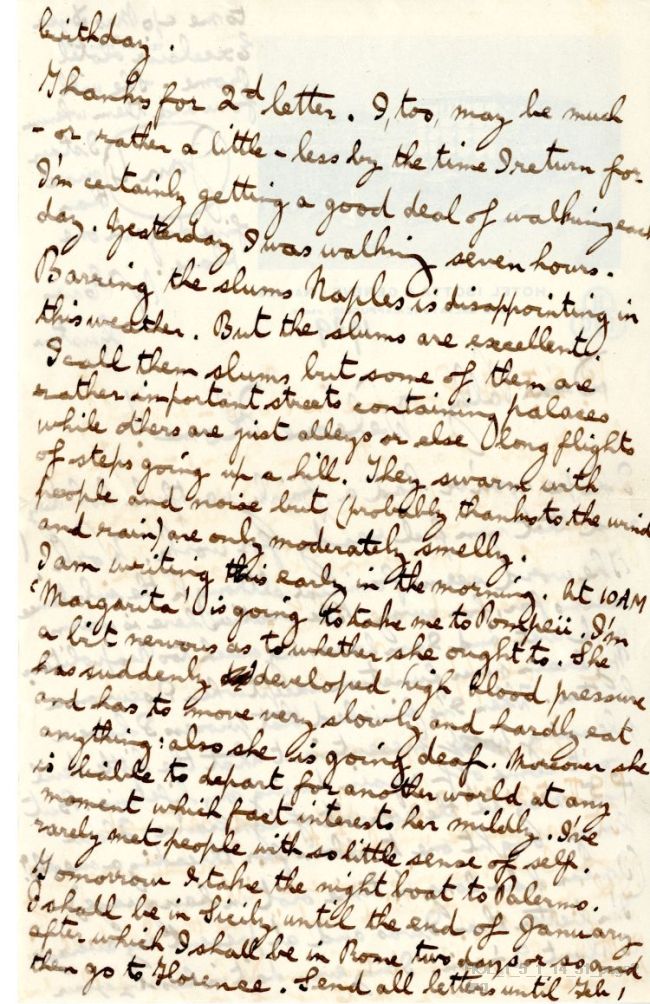 birthday.
Thanks for 2d letter. I, too, may be much
- or rather a little - less by the time I return for
I'm certainly getting a good deal of walking each
day. Yesterday I was walking seven hours.
Barring the slums Naples is disappointing in
this weather. But the slums are excellent.
I call them slums but some of them are
rather important streets containing palaces
while others are just alleys or else long flights
of steps going up a hill. They swarm with
people and noise but (probably thanks to the wind
and rain) are only moderately smelly.
I am writing this early in the morning. At 10 AM
'Margarita' is going to take me to Pompeii. I'm
a bit nervous as to whether she ought to. She
has suddenly developed high blood pressure
and has to move very slowly and hardly eat
anything: also she is going deaf. Moreover she
is liable to depart for another world at any
moment which fact interests her mildly. I've
rarely met people with so little sense of self.
Tomorrow I take the night boat to Palermo.
I shall be in Sicily until the end of January
after which I shall be in Rome two days or so and
then go to Florence. Send all letters until Feb 1